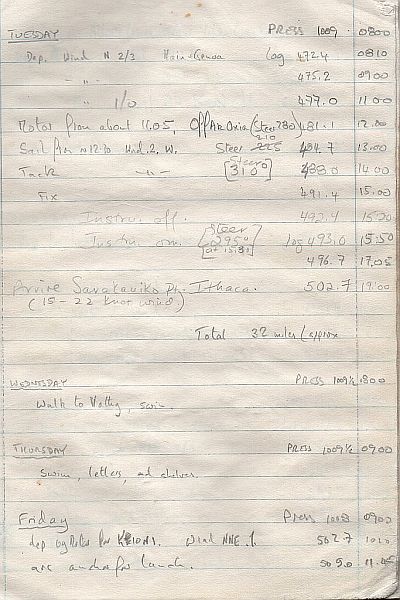 TUESDAY PRESS 1009 0800
Dep. Wind N 2/3 Main + Genoa Log 472.4 0810
- " - 475.2 0900
" 1/0 477.0 1100
Motor from about 11.05, Off Ak Oxia (Steer 280) 481.1 12.00
Sail from 12.10 Wind. 2. W. Steer 225 210 484.7 13.00
Tack - " - [Steer 310°] 488.0 14.00
Fix 491.4 15.00
Instru. off. 492.4
Instru on. [Steer 295° at 15.50] log 493.0 15.50
496.7 17.05
Arrive Sarakiniko Pt. Ithaca. 502.7 19.00
(15-22 knot wind)
Total 32 miles (approx
WEDNESDAY PRESS 1009½ 800
Walk to Vathy, swim.
THURSDAY PRESS 1009½ 0900
Swim, letters, and shelves.
Friday Press 1008 0900
dep by Motor for KIONI. Wind NNE. 1. 502.7 1010
anchor for lunch. 509.0 11.45